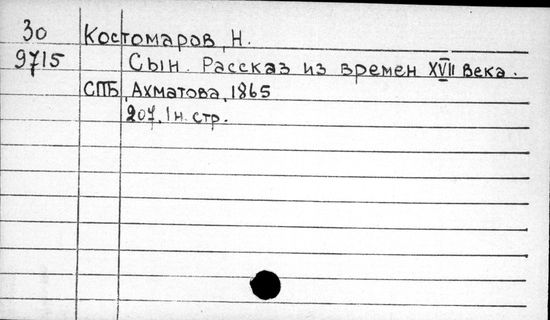 30 Костомаров, Н.
9715 Сын. Рассказ из времен XVII века.
СПБ, Ахматова, 1865
207, 1 н. стр.